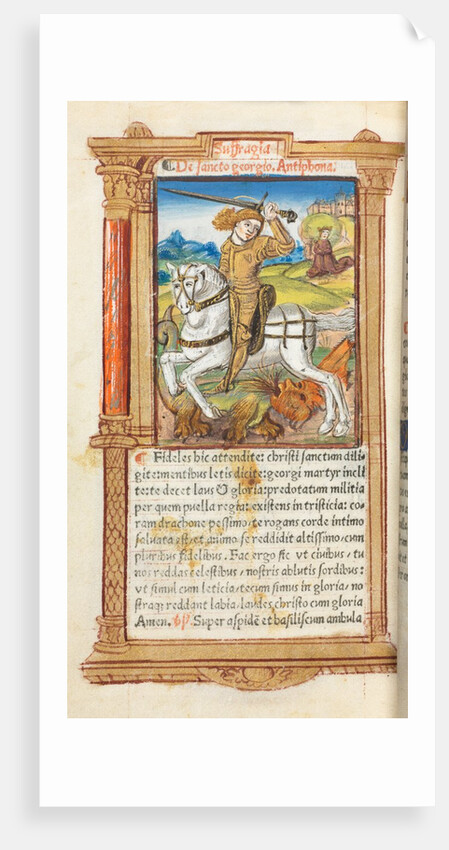 Suffragia
¶ De sancto georgio. Antiphona.
¶ Fideles hic attendite: christi sanctum dili-
gite: mentibus letis dicite: georgi martyr incli
te: te decet laus & gloria: predotatum militia
per quem puella regia: existens in tristicia: co-
ram drachone pessimo: te rogans corde intimo
saluata est, et animo se reddidit altissimo, cum
pluribus fidelibus. Fac ergo sic vt ciuibus, tu
nos reddas celestibus, nostris ablutis sordibus:
vt simul cum leticia, tecum simus in gloria, no
straque reddant labia, laudes christo cum gloria
Amen. Super aspidẽ et basiliscum ambula